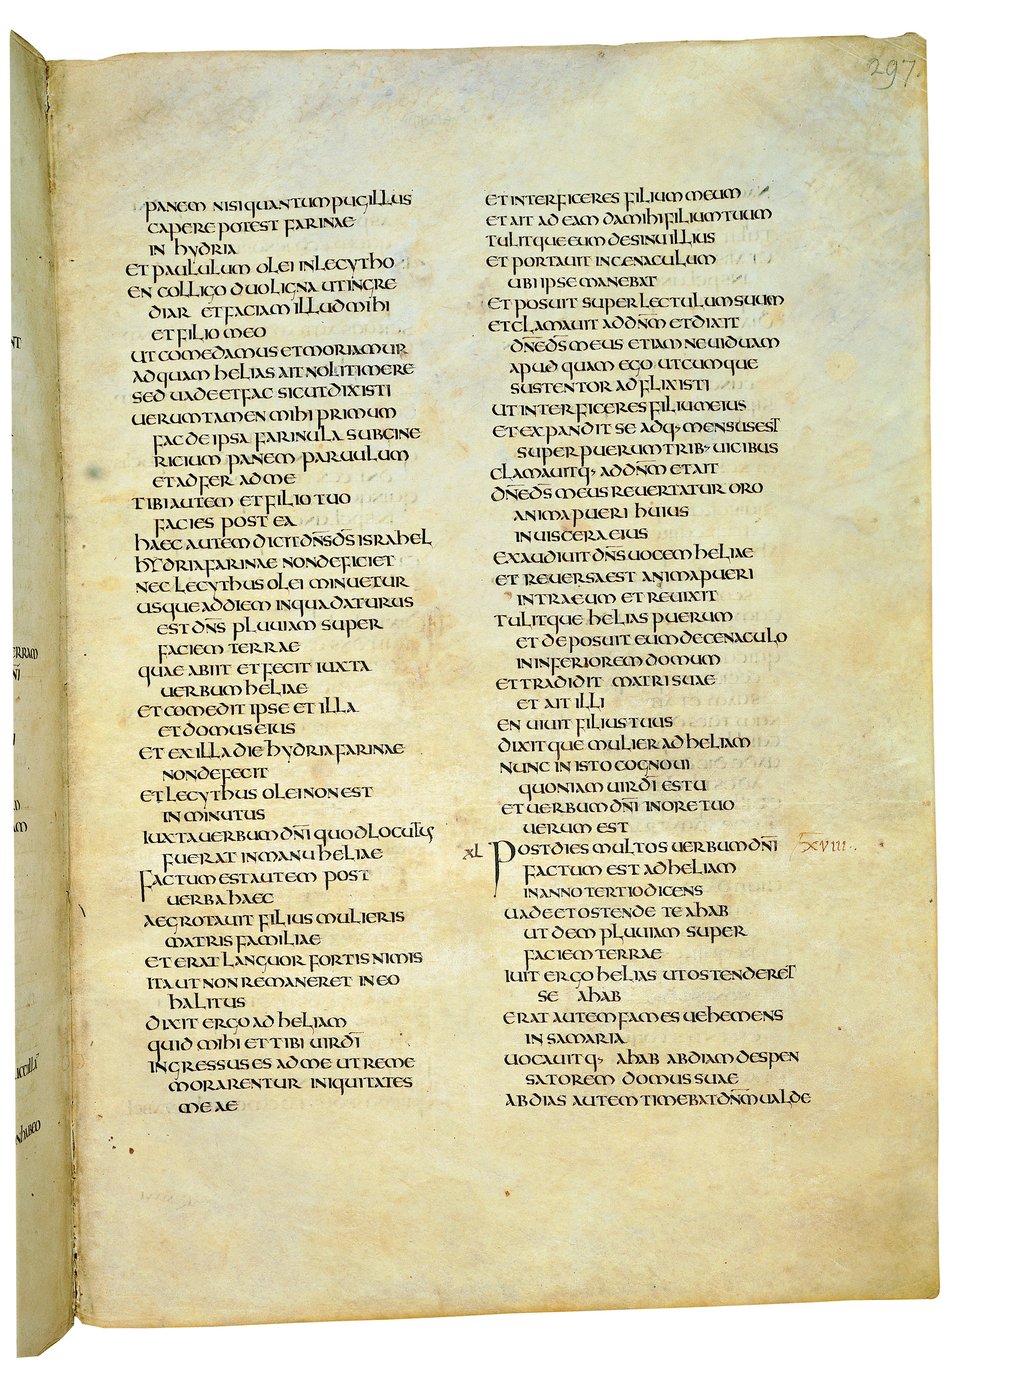 297
PANEM NISI QUANTUM PUGILLUS
CAPERE POTEST FARINAE
IN HYDRIA
ET PAULULUM OLEI IN LECYTHO
EN COLLIGO DUO LIGNA UT INGRE
DIAR ET FACIAM ILLUD MIHI
ET FILIO MEO
UT COMEDAMUS ET MORIAMUR
AD QUAM HELIAS AIT NOLI TIMERE
SED UADE ET FAC SICUT DIXISTI
UERUM TAMEN MIHI PRIMUM
FAC DE IPSA FARINULA SUBCINE
RICIUM PANEM PARUULUM
ET ADFER AD ME
TIBI AUTEM ET FILIO TUO
FACIES POST EA
HAEC AUTEM DICIT DN̄S D̄S ISRAHEL
HYDRIA FARINAE NON DEFICIET
NEC LECYTHUS OLEI MINUETUR
USQUE AD DIEM IN QUA DATURUS
EST DN̄S PLUUIAM SUPER
FACIEM TERRAE
QUAE ABIIT ET FECIT IUXTA
UERBUM HELIAE
ET COMEDIT IPSE ET ILLA
ET DOMUS EIUS
ET EX ILLA DIE HYDRIA FARINAE
NON DEFECIT
ET LECYTHUS OLEI NON EST
IN MINUTUS
IUXTA UERBUM DN̄I QUOD LOCUTUS
FUERAT IN MANU HELIAE
FACTUM EST AUTEM POST
UERBA HAEC
AEGROTAUIT FILIUS MULIERIS
MATRIS FAMILIAE
ET ERAT LANGUOR FORTIS NIMIS
ITA UT NON REMANERET IN EO
HALITUS
DIXIT ERGO AD HELIAM
QUID MIHI ET TIBI UIR DĪ
INGRESSUS ES AD ME UT REME
MORARENTUR INIQUITATES
MEAE
ET INTERFICERES FILIUM MEUM
ET AIT AD EAM DA MIHI FILIUM TUUM
TULITQUE EUM DE SINU ILLIUS
ET PORTAUIT IN CENACULUM
UBI IPSE MANEBAT
ET POSUIT SUPER LECTULUM SUUM
ET CLAMAUIT AD DN̄M ET DIXIT
DN̄E D̄S MEUS ETIAM NE UIDUAM
APUD QUAM EGO UTCUMQUE
SUSTENTOR ADFLIXISTI
UT INTERFICERES FILIUM EIUS
ET EXPANDIT SE ADQ· MENSUS EST
SUPER PUERUM TRIB· UICIBUS
CLAMAUITQ· AD DN̄M ET AIT
DN̄E D̄S MEUS REUERTATUR ORO
ANIMA PUERI HUIUS
IN UISCERA EIUS
EXAUDIUIT DN̄S UOCEM HELIAE
ET REUERSA EST ANIMA PUERI
INTRA EUM ET REUIXIT
TULITQUE HELIAS PUERUM
ET DEPOSUIT EUM DE CENACULO
IN INFERIOREM DOMUM
ET TRADIDIT MATRI SUAE
ET AIT ILLI
EN UIUIT FILIUS TUUS
DIXITQUE MULIER AD HELIAM
NUNC IN ISTO COGNOUI
QUONIAM UIR DĪ ES TU
ET UERBUM DN̄I IN ORE TUO
UERUM EST
XL POST DIES MULTOS UERBUM DN̄I XVIII
FACTUM EST AD HELIAM
IN ANNO TERTIO DICENS
UADE ET OSTENDE TE AHAB
UT DEM PLUUIAM SUPER
FACIEM TERRAE
IUIT ERGO HELIAS UT OSTENDERET
SE AHAB
ERAT AUTEM FAMES UEHEMENS
IN SAMARIA
UOCAUITQ· AHAB ABDIAM DESPEN
SATOREM DOMUS SUAE
ABDIAS AUTEM TIMEBAT DN̄M UALDE